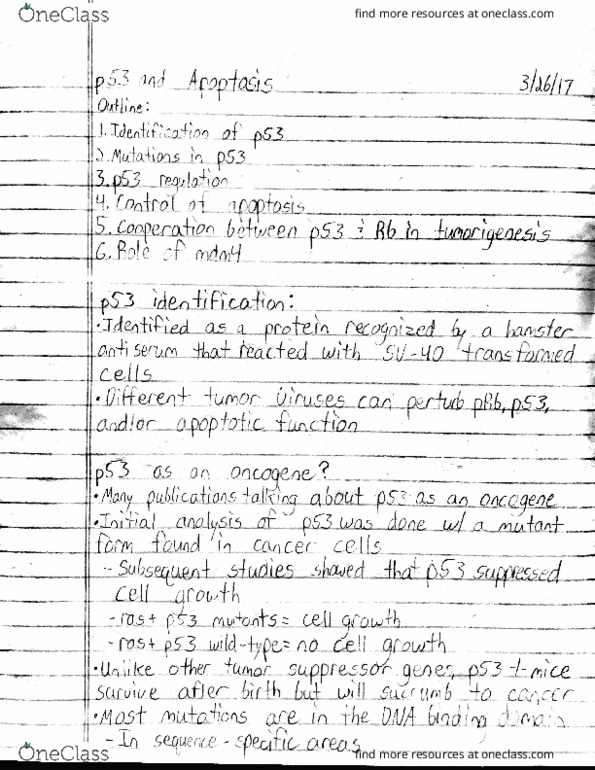 OneClass
find more resources at oneclass.com
p53 and Apoptosis 3/26/17
Outline:
1. Identification of p53
2. Mutations in p53
3. p53 regulation
4. Control of apoptosis
5. Cooperation between p53 & Rb in tumorigenesis
6. Role of mdm4
p53 identification:
• Identified as a protein recognized by a hamster
antiserum that reacted with SV-40 transformed
cells
• Different tumor viruses can perturb pRb, p53,
and/or apoptotic function
p53 as an oncogene?
• Many publications talking about p53 as an oncogene
• Initial analysis of p53 was done w/ a mutant
form found in cancer cells
- Subsequent studies showed that p53 suppressed
cell growth
- ras + p53 mutants = cell growth
- ras + p53 wild-type = no cell growth
• Unlike other tumor suppressor genes, p53 -/- mice
survive after birth but will succumb to cancer
• Most mutations are in the DNA binding domain
- In sequence-specific areas
OneClass
find more resources at oneclass.com